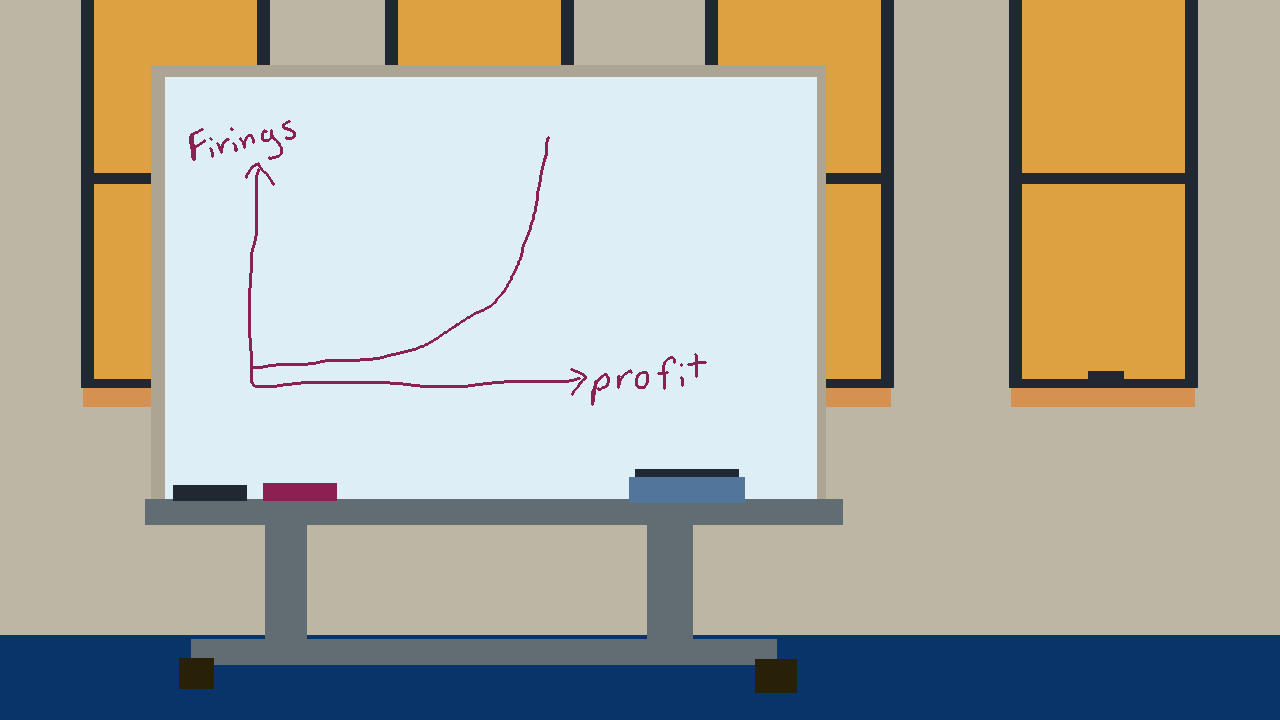 Firings
profit